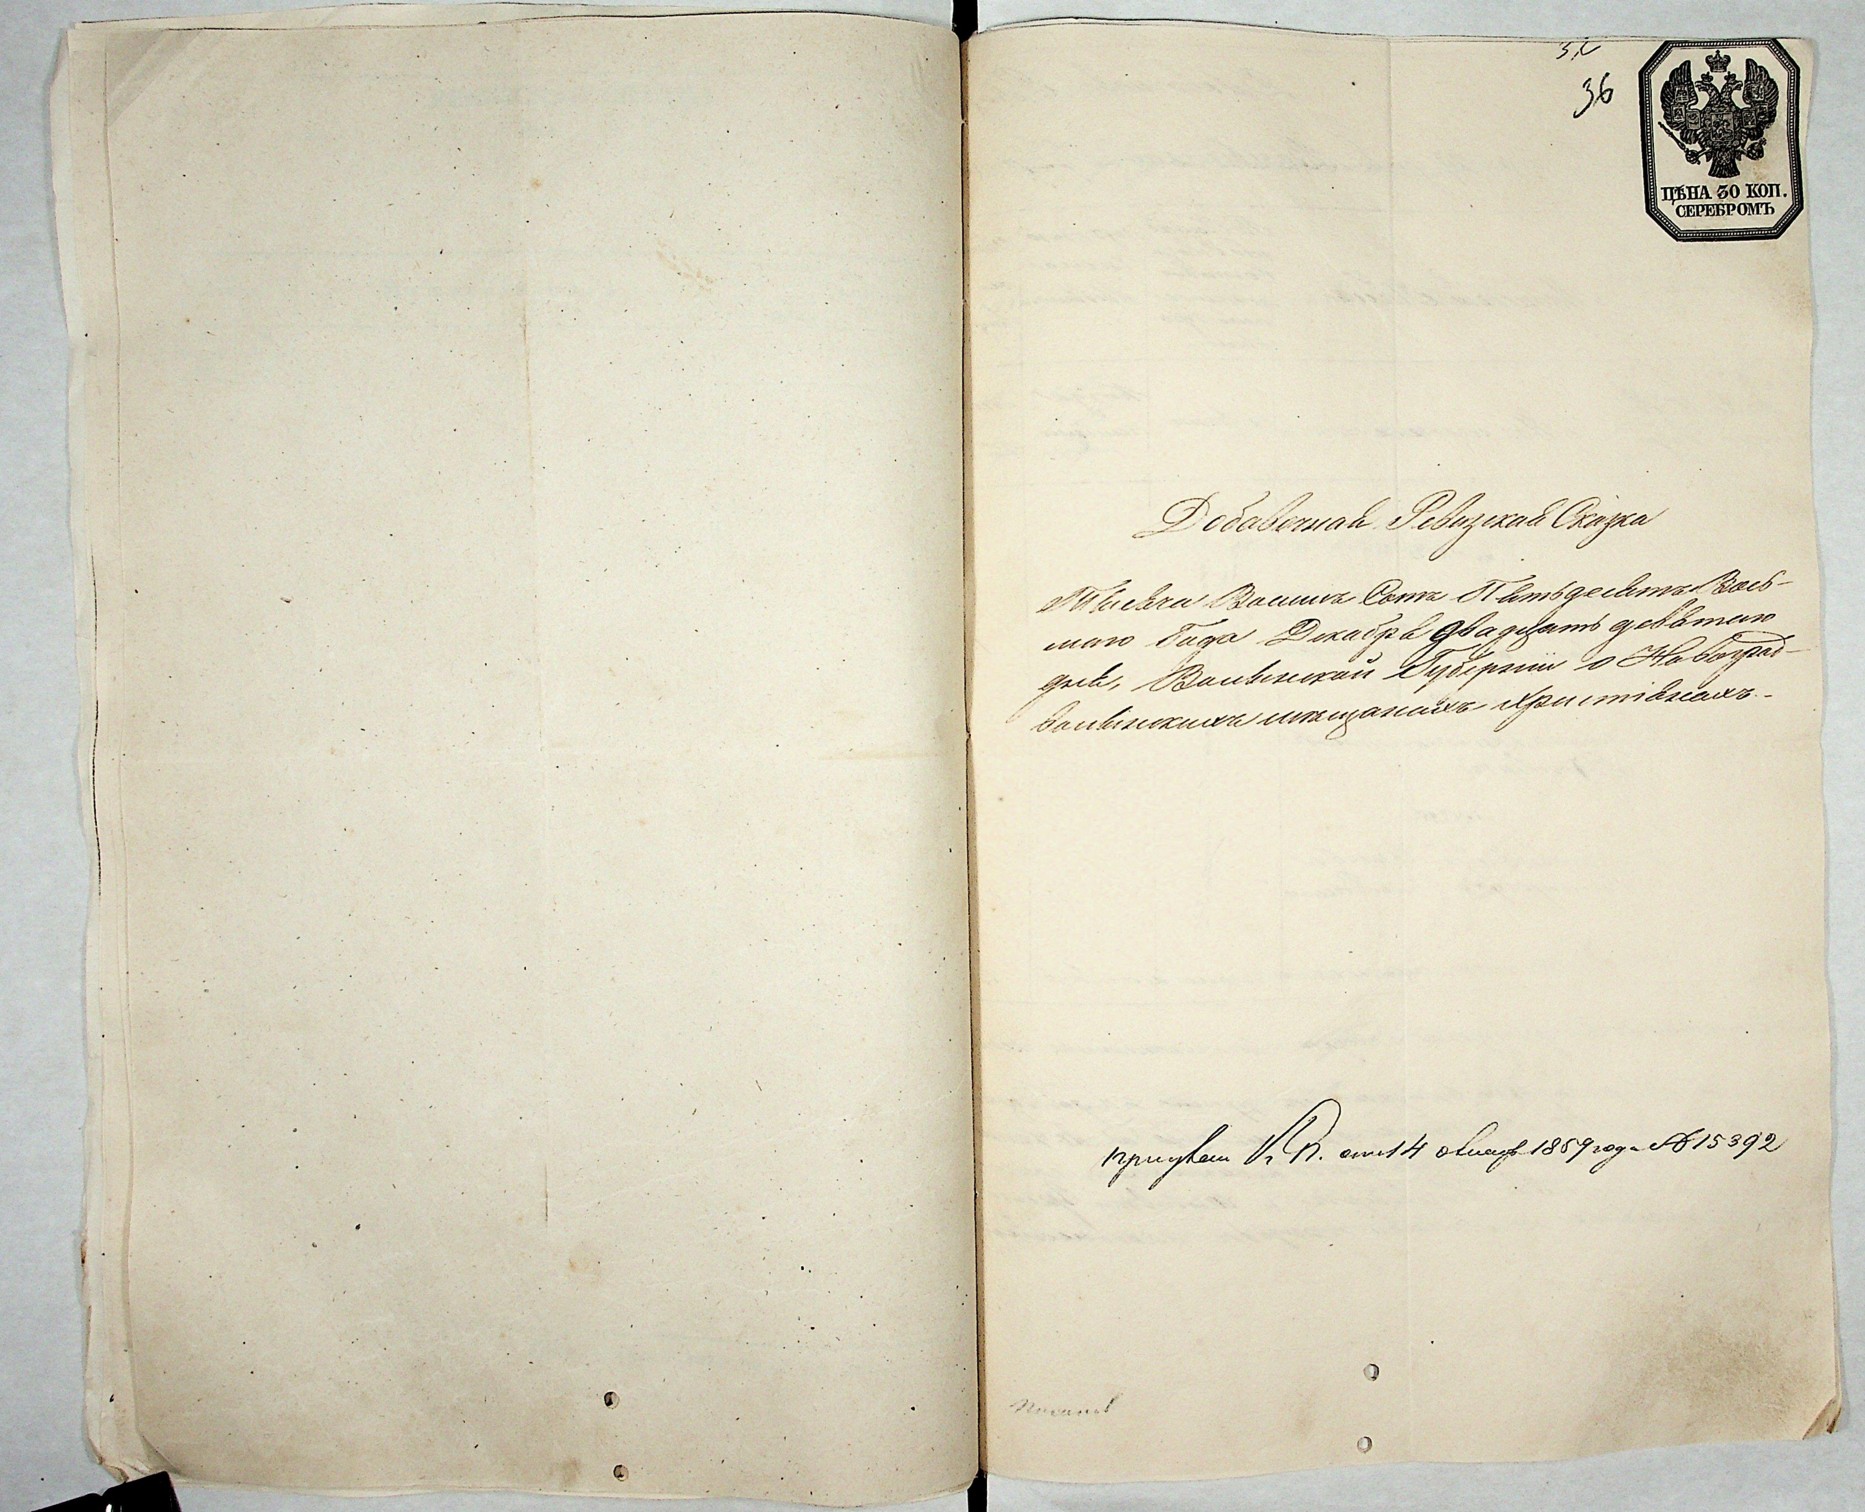 36
ЦѢНА 30 КОП.
СЕРЕБРОМЪ
Добавочная Ревизская Сказка
Тысяча Восемь Сотъ Пятьдесятъ Вось-
маго Года Декабря двадцать девятаго
дня, Волынской Губерніи о Новоград-
волынскихъ мѣщанахъ христіянахъ
при указѣ К. П. отъ 14 января 1859 года № 15392